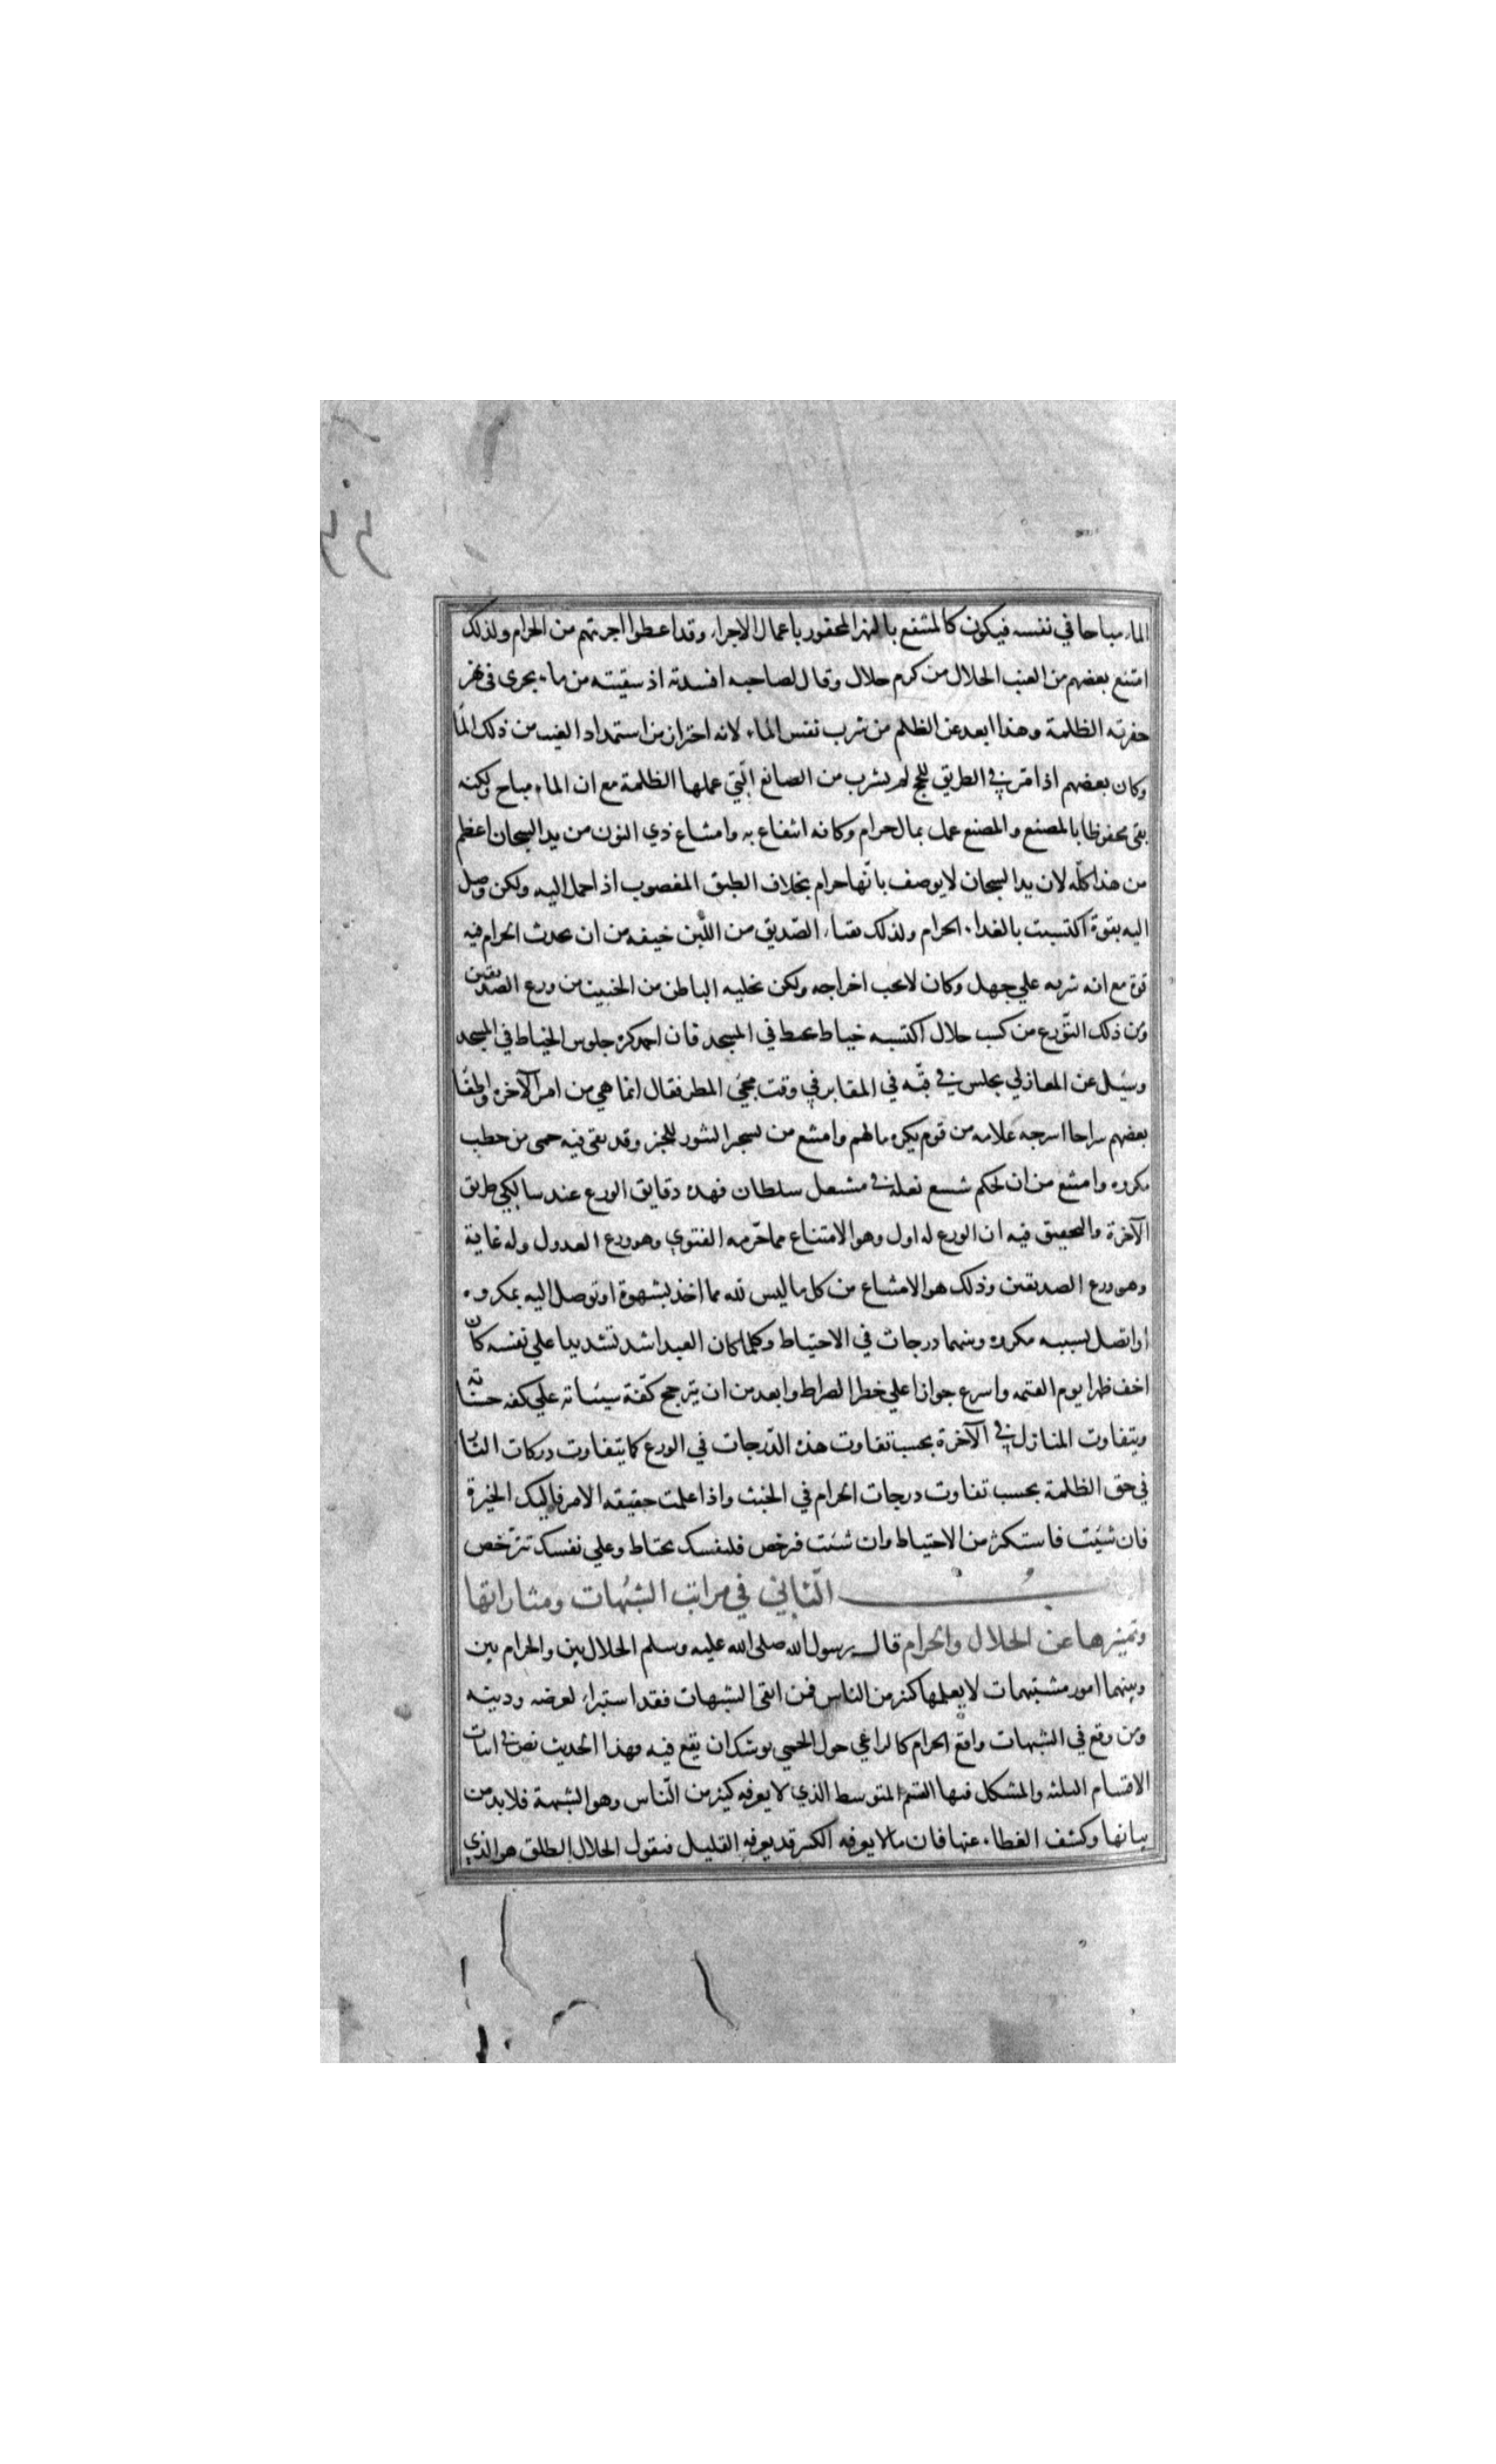 الماء مباحا في نفسه فيكون كالمنتفع بالنهر المحفور باعمال الاجراء وقد اعطوا اجرتهم من الحرام ولذلك
امتنع بعضهم من العنب الحلال من كرم حلال وقال لصاحبه افسدته اذ سقيته من ماء يجرى في نهر
حفرته الظلمة وهذا ابعد عن الظلم من شرب نفس الماء لانه احتراز من استمداد العنب من ذلك الماء
وكان بعضهم اذا مر في الطريق للحج لم يشرب من المصانع الّتي عملها الظلمة مع ان الماء مباح ولكنه
بقى محفوظا بالمصنع والمصنع عمل بمال حرام وكانه انتفاع به وامتناع ذي النون من يد السجان اعظم
من هذا كلّه لان يد السجان لا يوصف بانّها حرام بخلاف الطبق المغصوب اذا حمل اليه ولكن وصل
اليه بقوة اكتسبت بالغداء الحرام ولذلك تقيا الصّديق من اللّبن خيفه من ان يحدث الحرام فيه
قوة مع انه شربه علي جهل وكان لا يجب اخراجه ولكن تخليه الباطن من الخبيث من ورع الصديقين
ومن ذلك التّورع من كسب حلال اكتسبه خياط يخيط في المسجد فان احمد كره جلوس الخياط في المسجد
وسئل عن المغازلي يجلس في قبّه في المقابر في وقت مجيء المطر فقال انما هي من امر الآخرة واطفا
بعضهم سراجا اسرجه غلامه من قوم يكره مالهم وامتنع من تسجير التنور للخبز وقد بقى فيه حمى من حطب
مكروه وامتنع من ان يحكم شسع نعله في مشعل سلطان فهذه دقايق الورع عند سالكي طريق
الآخرة والتحقيق فيه ان الورع له اول وهو الامتناع مما حرّمه الفتوي وهو ورع العدول وله غاية
وهو ورع الصديقين وذلك هو الامتناع من كل ما ليس لله مما اخذ بشهوة او توصل اليه بمكروه
او اتصل بسببه مكروه وبينهما درجات في الاحتياط وكلما كان العبد اشد تشديدا علي نفسه كان
اخف ظهرا يوم القيمه واسرع جوازا علي خطر الصراط وابعد من ان يترجح كفّة سيئاته علي كفه حسناته
ويتفاوت المنازل في الآخرة بحسب تفاوت هذه الدّرجات في الورع كما يتفاوت دركات النّار
في حق الظلمة بحسب تفاوت درجات الحرام في الخبث واذا علمت حقيقه الامر فاليك الخيرة
فان شئت فاستكثر من الاحتياط وان شئت فرخص فلنفسك تحتاط وعلي نفسك تترخص
البــــاب الثّاني في مراتب الشبُهات ومثاراتها
وتمييزها عن الحلال والحرام قال رسول الله صلى الله عليه وسلم الحلال بين والحرام بين
وبينهما امور مشتبهات لا يعلمها كثير من الناس فمن اتقى الشبهات فقد استبراء لعرضه ودينه
ومن وقع في الشبهات واقع الحرام كالراعي حول الحمي يوشك ان يقع فيه فهذا الحديث نص في اثبات
الاقسام الثلثه والمشكل منها القسم المتوسط الذي لا يعرفه كثير من النّاس وهو الشبهة فلا بد من
بيانها وكشف الغطاء عنها فان ما لا يعرفه الكثير قد يعرفه القليل فنقول الحلال المطلق هو الذي